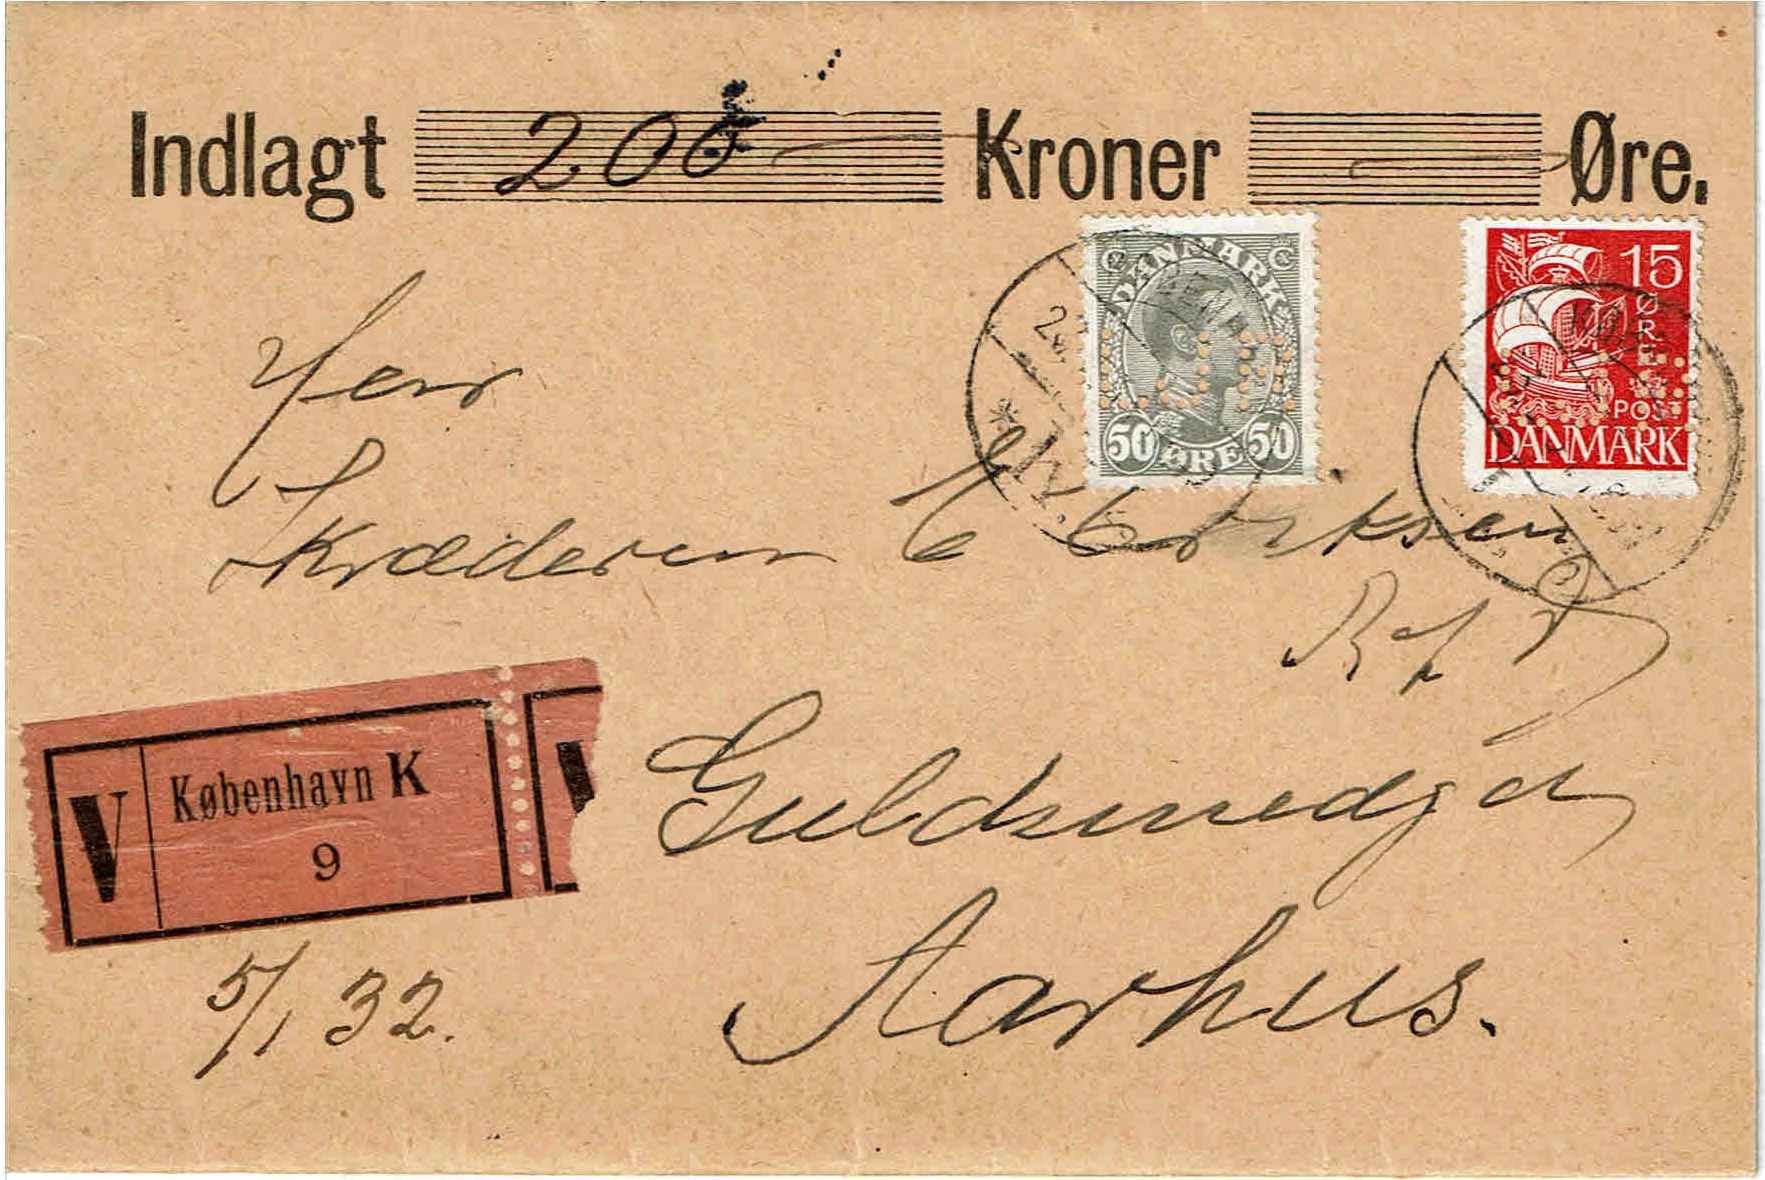 Indlagt 200 Kroner Øre.
DANMARK
50 ØRE 50
15
ØRE
POST
DANMARK
Herr
Skræderen C Eriksen
Guldsmedga
Aarhus.
V København K
9
5/1 32.